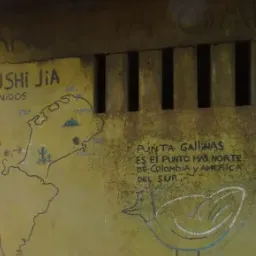 USHI JIA
NIDOS
PUNTA GALLINAS
ES EL PUNTO MAS NORTE
DE COLOMBIA Y AMERICA
DEL SUR